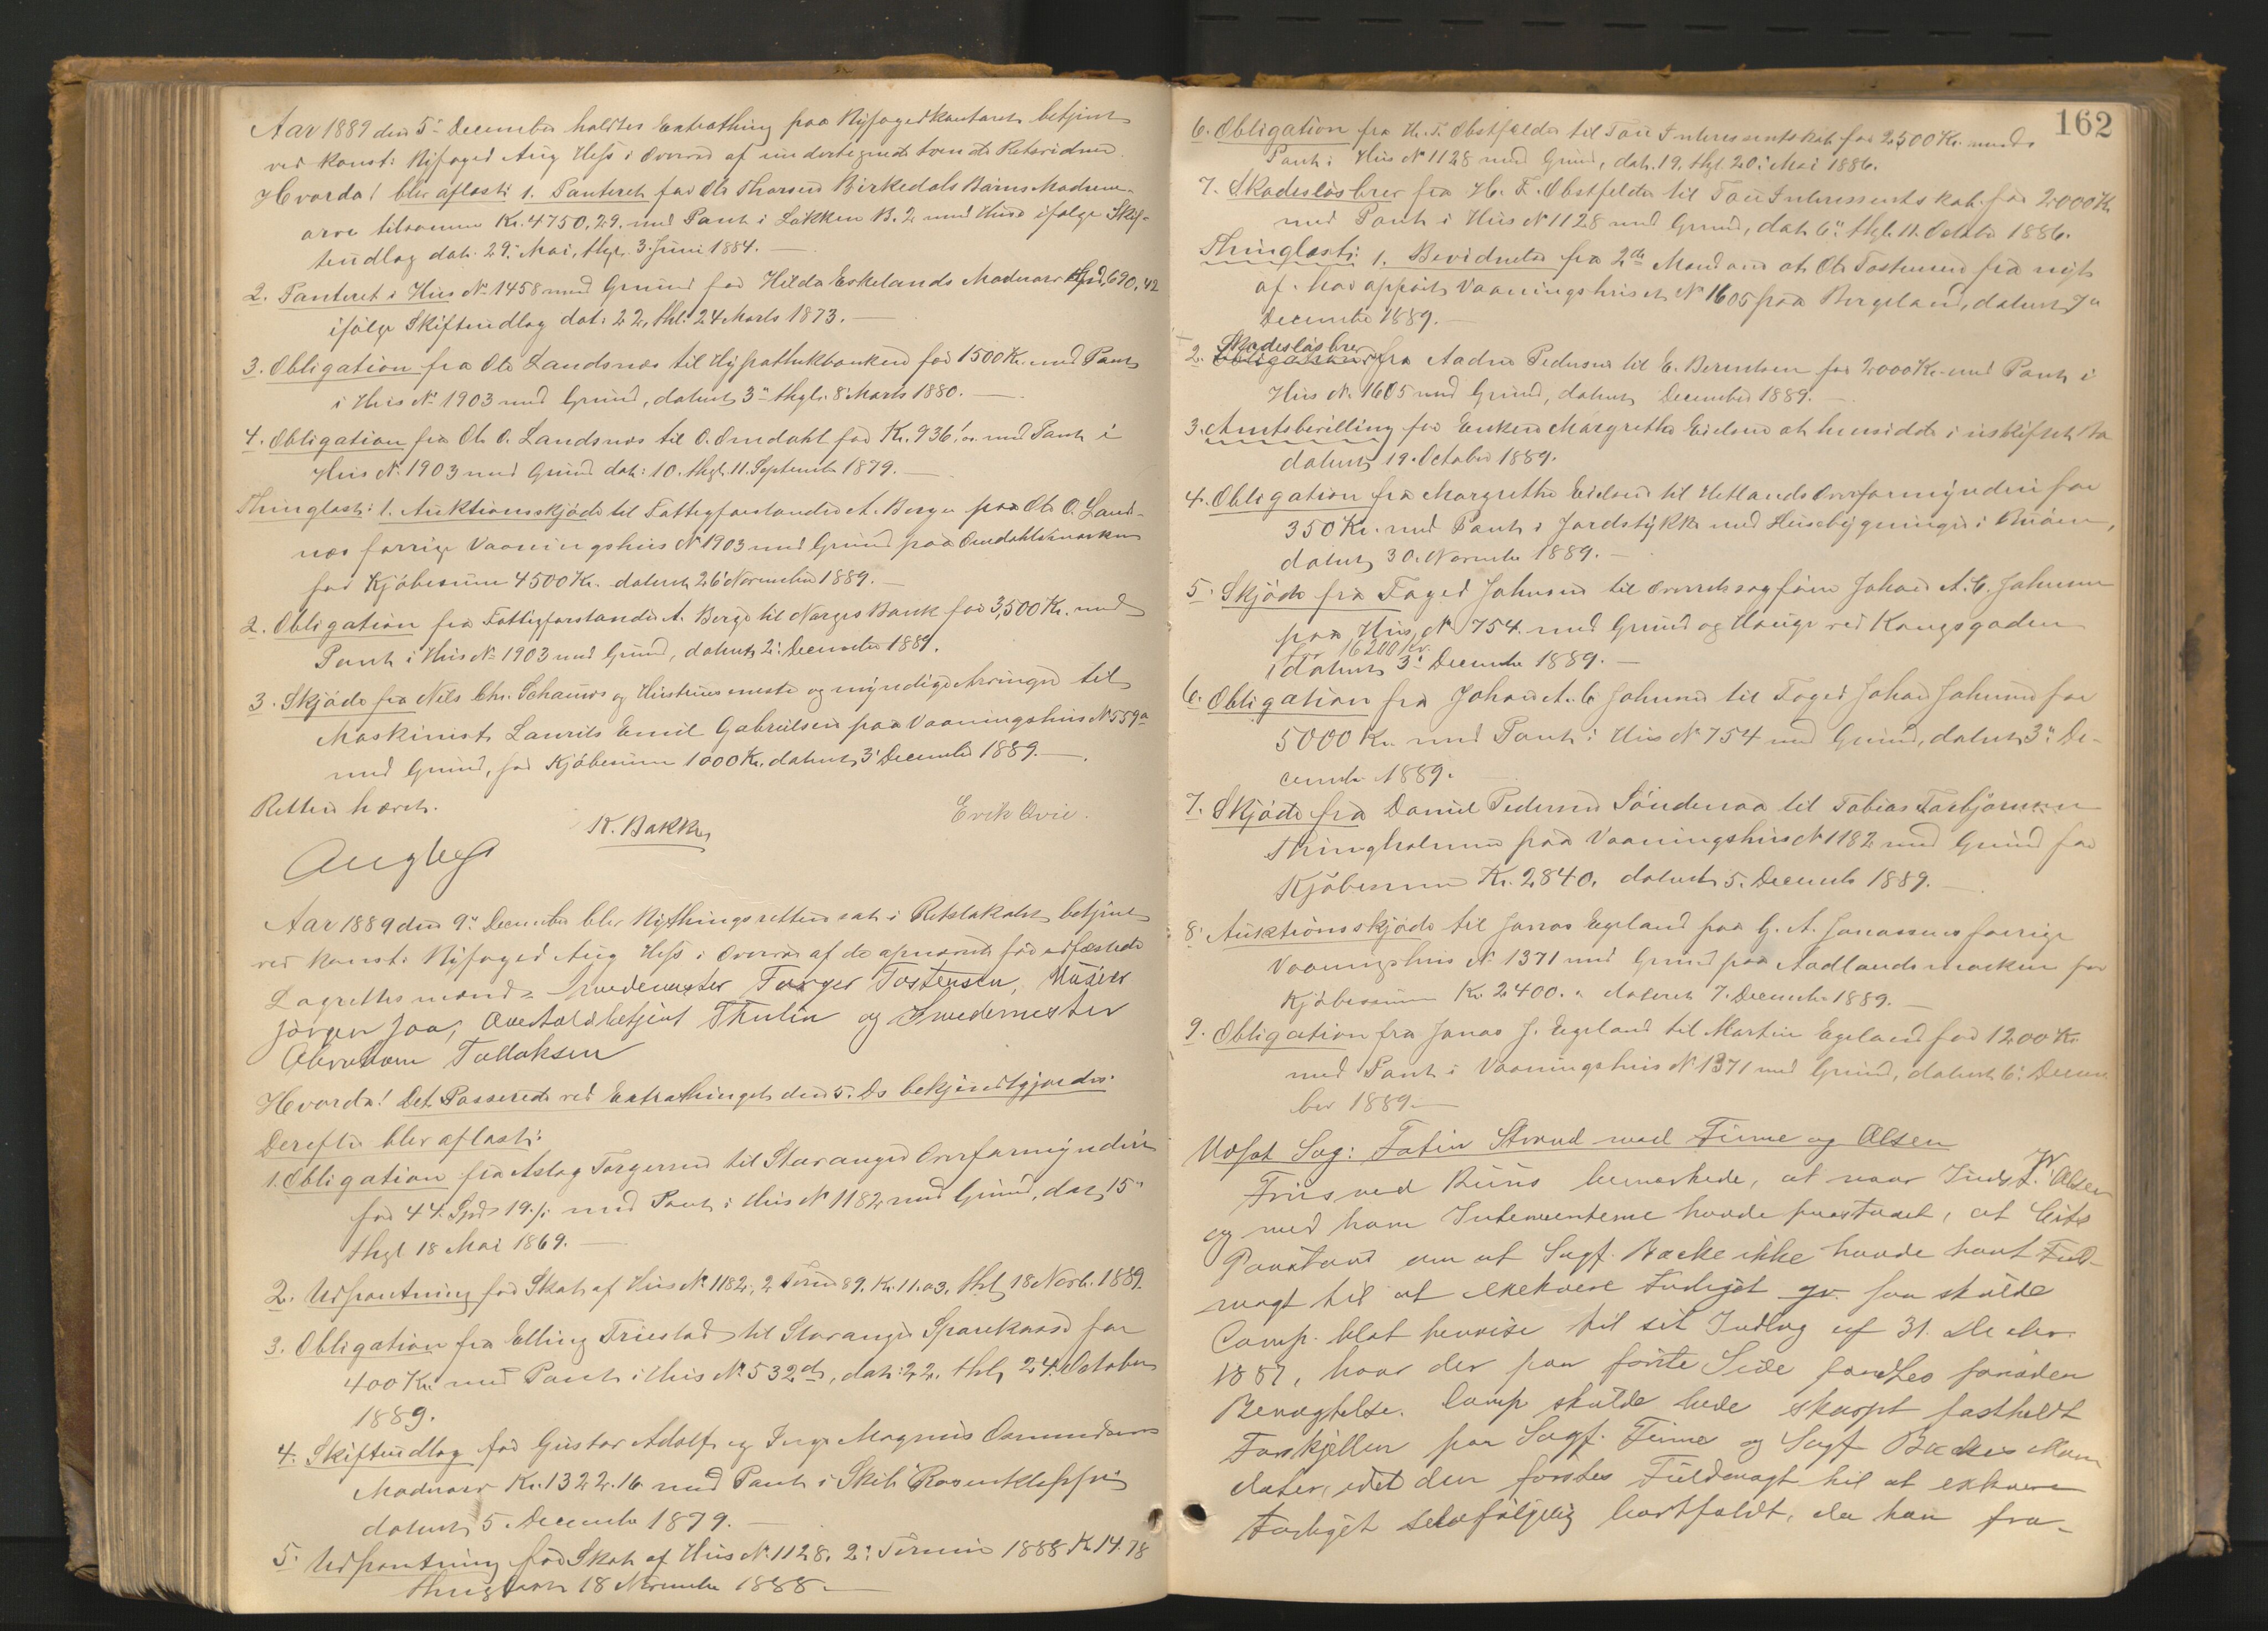 Aar 1889 den 5te December holdtes Extrathing paa Byfogedkontoret betjent
ved konst: Byfoged Aug Hess i Overvær af undertegnede tvende Retsvidner.
Hvorda! blev aflæst: 1. Panteret for Ole Thorsen Birkedals Børns Mødrene-
arv tilsammen Kr. 4750,29. med Pant i Løkken B. 2 med Huse ifølge Skif-
teudlæg dat: 29. Mai, thgl. 3. Juni 1884.
2. Panteret i Hus No 1458 med Grund for Hilda Eskelands Mødrearv 690,42
ifølge Skifteudlæg dat: 22, thl: 24 Marts 1873.
3. Obligation fra Ole Landsnæs til Hypothekbanken for 1500 Kr. med Pant
i Hus No 1903 med Grund, dateret 3" thgl. 8' Marts 1880.
4. Obligation fra Ole O. Landsnæs til O. Omdahl for Kr. 936, med Pant i
Hus No 1903 med Grund dat: 10. thgl. 11. September 1879.
Thinglæst: 1. Auktionsskjøde til Fattigforstander A. Berge paa Ole O. Lands-
næs forrige Vaaningshus No 1903 med Grund paa Omdahlsmarken
for Kjøbesum 4500 Kr. dateret 26' November 1889.
2. Obligation fra Fattigforstander A. Berge til Norges Bank for 3,500 Kr. med
Pant i Hus No 1903 med Grund, dateret 2: December 1889.
3. Skjøde fra Nils Chr. Schaures og Hustrues meste og myndige Arvinger til
Maskinist Laurits Emil Gabrielsen paa Vaaningshus No 559a
med Grund, for Kjøbesum 1000 Kr. dateret 3' December 1889.
Retten hævet.
K. Bakke
Erik Qvie.
Aug Hess
Aar 1889 den 9" December blev Bythingsretten sat i Retslokalet betjent
ved konst: Byfoged Aug Hess i Overvær af de opnævnte før edfæstede
Lagrettesmænd: Smedemester Torger Tostensen, Murer
Jørgen Joa, Overtoldbetjent Thulin og Smedemester
Abraham Tollaksen
Hvorda! Det Passerede ved Extrathinget den 5. Ds bekjendtgjordes.
Derefter blev aflæst:
1. Obligation fra Aslag Torgersen til Stavanger Overformynderi
for 44. Spd 19 /. med Pant i Hus No 1182 med Grund, dat 15"
thgl 18 Mai 1869.
2. Udpantning for Skat af Hus No 1182, 2 Termin 89. Kr. 11.03. thl 18 Novb. 1889.
3. Obligation fra Elling Friestad til Stavanger Sparekasse for
400 Kr. med Pant i Hus No 532d, dat: 22. thl 24. October
1889.
4. Skifteudlæg for Gustav Adolf og Inga Magnus Osmundsens
Mødrearv Kr. 1322.16. med Pant i Skib "Rosenkleppen"
dateret 5 December 1879.
5. Udpantning for Skat af Hus No 1128, 2: Termin 1888 Kr 14.78
thinglæst 18 November 1888.
162
6. Obligation fra H. F. Obstfelder til Tou Interessentskab for 2,500 Kr. med
Pant i Hus No 1128 med Grund, dat. 19, thgl. 20: Mai 1886.
7. Skadesløsbrev fra H. F. Obstfelder til Tou Interessentskab for 2000 Kr
med Pant i Hus No 1128 med Grund, dat 6" thgl. 11. October 1886.
Thinglæst: 1. Bevidnelse fra 2de Mænd om at Ole Tostensen fra nyt
af har opført Vaaningshuset No 1605 paa Bergeland, dateret 7"
December 1889.
Skadesløsbrev
2. Obligation fra Aadne Pedersen til E. Berentsen for 2000 Kr. med Pant i
Hus No 1605 med Grund, dateret December 1889.
3. Amtsbevilling for Enken Margrethe Eielsen at hensidde i uskiftet Bo
dateret 19. October 1889.
4. Obligation fra Margrethe Eielsen til Hetlands Overformynderi for
350 Kr. med Pant i Jordstykke med Husebygninger i Buøen,
dateret 30. November 1889.
5. Skjøde fra Foged Johnsen til Overretssagfører Johan A. C. Johnsen
paa Hus No 754. med Grund og Hauge ved Kongsgaden
for 16200 Kr.
dateret 3: December 1889.
6. Obligation fra Johan A. C. Johnsen til Foged Johan Johnsen for
5000 Kr. med Pant i Hus No 754 med Grund, dateret 3" De-
cember 1889.
7. Skjøde fra Daniel Pedersen Søndenaa til Tobias Torbjørnsen
Thingholmen paa Vaaningshus No 1182 med Grund for
Kjøbesum Kr. 2840. dateret 5. December 1889.
8. Auktionsskjøde til Jonas Egeland paa G. A. Jonassens forrige
Vaaningshus No 1371 med Grund paa Aadlandsmarken for
Kjøbesum Kr. 2400. " dateret 7. December 1889.
9. Obligation fra Jonas J. Egeland til Martin Egeland for 1200 Kr.
med Pant i Vaaningshus No 1371 med Grund, dateret 6: Decem
ber 1889.
Udsat Sag: Fatin Strand mod Finne og Olsen
Friis ved Buus bemærkede, at naar W. Olsen
og med ham Intervenienterne havde paastaaet, at Cits
Paastand om at Sagf. Backe ikke havde havt Fuld-
magt til at exekvere Forliget gv. saa skulde
Comp. blot henvise til sit Indlæg af 31.
1887, hvor der paa første Side fandtes saadan
Benægtelse. Comp skulde hele skarpt fastholdt
Forskjellen paa Sagf. Finne og Sagf Backes Man
dater, idet den førstes Fuldmagt til at exkvere
Forliget selvfølgelig bortfaldt, da han fra-